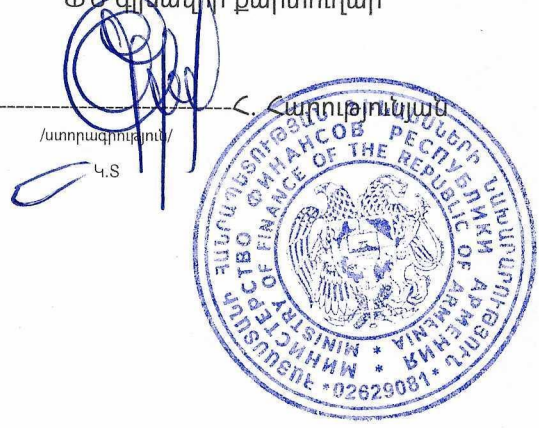 ՖՆ գլխավոր քարտուղար
Հ. Հարությունյան
/ստորագրություն/
Կ.Տ
ՀԱՅԱՍՏԱՆԻ ՀԱՆՐԱՊԵՏՈՒԹՅԱՆ ՖԻՆԱՆՍՆԵՐԻ ՆԱԽԱՐԱՐՈՒԹՅՈՒՆ
МИНИСТЕРСТВО ФИНАНСОВ РЕСПУБЛИКИ АРМЕНИЯ
MINISTRY OF FINANCE OF THE REPUBLIC OF ARMENIA
*02629081*